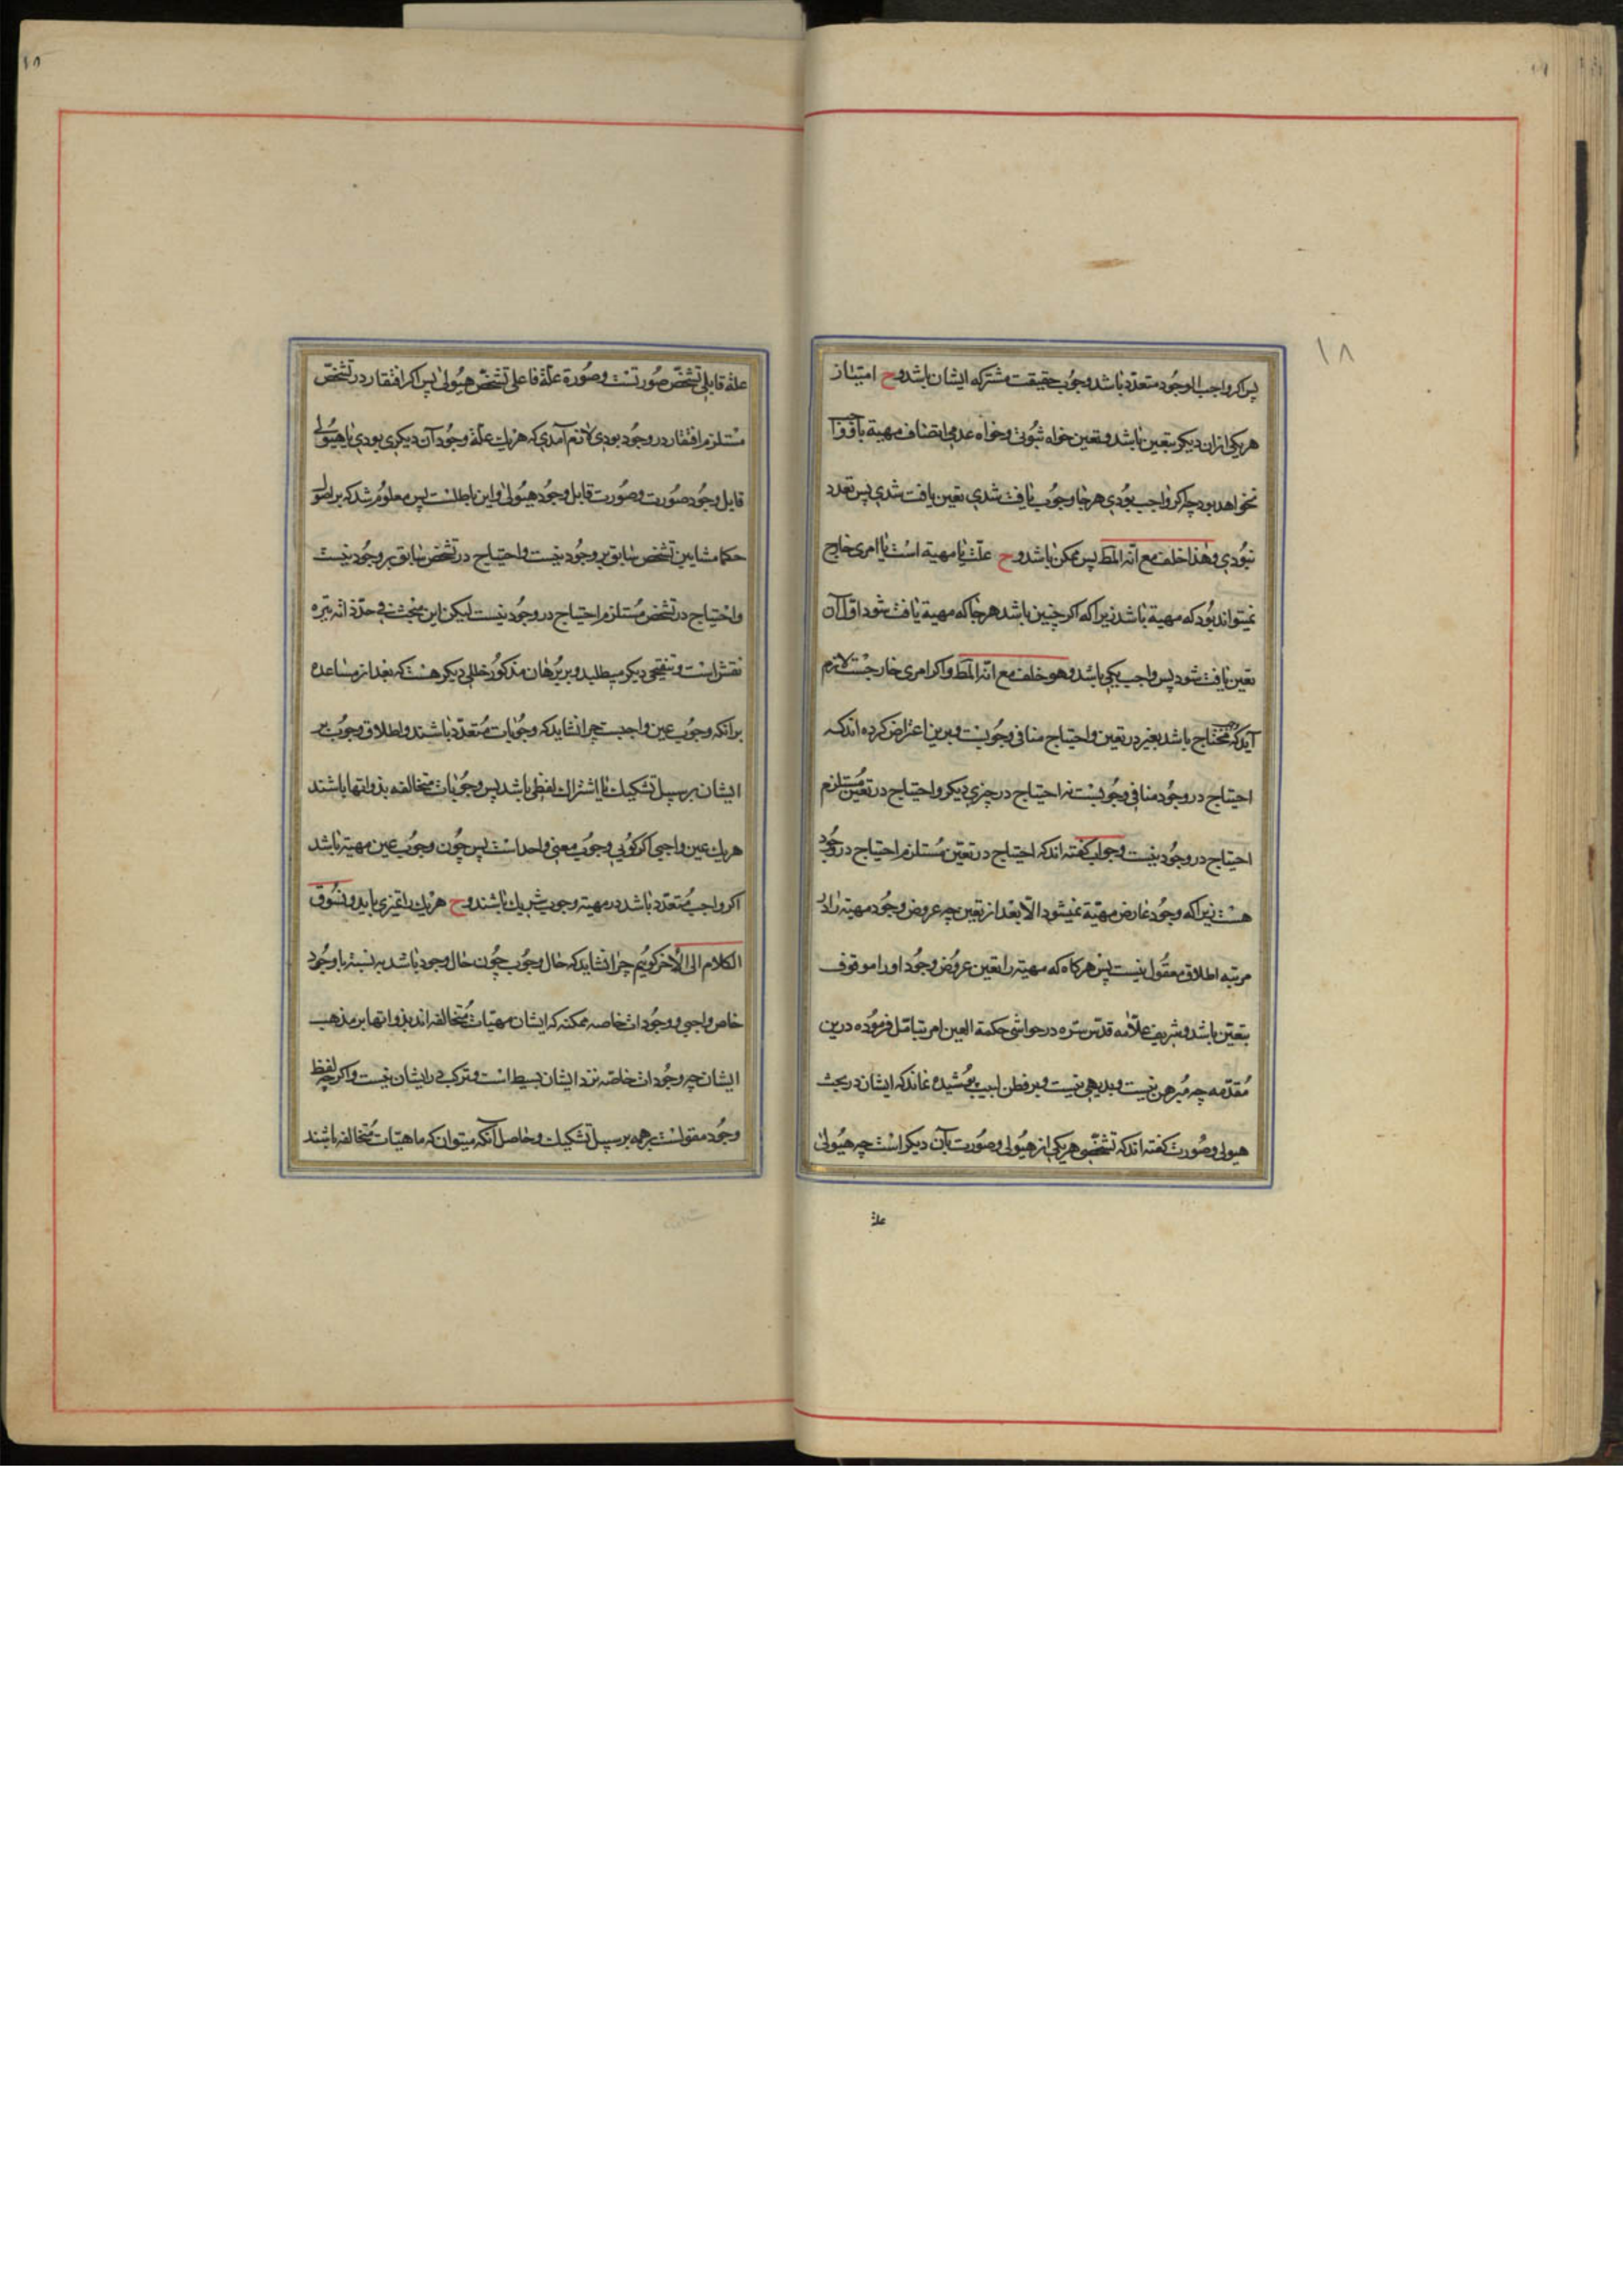 ١٨
پس اگر واجب الوجود متعدد باشد وجوب حقیقت مشترکه ایشان باشد و ح امتیاز
هر یکی از ان دیگر بتعین باشد و تعین خواه ثبوتی و خواه عدمی اتصاف مهیة باو
نخواهد بود چه اگر واجب بودی هرجا وجوب یافت شدی تعین یافت شدی پس تعدد
نبودی و هذا خلف مع انه المط پس ممکن باشد و ح علت یا مهیة است یا امری خارج
نمیتواند بود که مهیة باشد زیرا که اگر چنین باشد هرجا که مهیة یافت شود آن
تعین یافت شود پس واجب یکی باشد و هو خلف مع انه المط و اگر امری خارجست لازم
آید که محتاج باشد بغیر در تعین و احتیاج منافی وجوبست و برین اعتراض کرده اند که
احتیاج در وجود منافی وجوبست نه احتیاج در چیزی دیگر و احتیاج در تعین مستلزم
احتیاج در وجود نیست و جواب گفته اند که احتیاج در تعین مستلزم احتیاج در وجود
هست زیرا که وجود عارض مهیة نمیشود الا بعد از تعین چه عروض وجود مهیة را در
مرتبه اطلاق معقول نیست پس هرگاه که مهیة را تعین عروض وجود او را موقوف
بتعین باشد و شریف علامه قدس سره در حواشی حکمة العین امر بتامل فرموده درین
مقدمه چه مبرهن نیست و بدیهی نیست و بر فطن لبیب پوشیده نماند که ایشان در بحث
هیولی و صورت گفته اند که تشخص هر یکی از هیولی و صورت بآن دیگر است چه هیولی
علة
علة قابلی تشخص صورتست و صورة علة فاعلی تشخص هیولی پس اگر افتقار در تشخص
مستلزم افتقار در وجود بودی لازم آمدی که هر یک علة وجود آن دیگری بودی یا هیولی
قابل وجود صورت و صورت قابل وجود هیولی و این باطلست پس معلوم شد که بر اصول
حکما مشایین تشخص سابق بر وجود نیست و احتیاج در تشخص سابق بر وجود نیست
و احتیاج در تشخص مستلزم احتیاج در وجود نیست لیکن این مبحث فی حد ذاته تیره
نقش است و تنقیحی دیگر میطلبد و بر برهان مذکور خللی دیگر هست که بعد از مساعده
بر آنکه وجوب عین واجبست چرا نشاید که وجوبات متعدد باشند و اطلاق وجوب بر
ایشان بر سبیل تشکیک یا اشتراک لفظی باشد پس وجوبات متخالفه بذواتها باشند
هر یک عین واجبی اگر گویی وجوب معنی واحد است پس چون وجوب عین مهیة باشد
اگر واجب متعدد باشد در مهیة وجوب شریک باشند و ح هر یک را تمیزی باید و نسوق
الکلام الی الآخر گویم چرا نشاید که حال وجوب چون حال وجود باشد به نسبة با وجود
خاص واجبی و وجودات خاصه ممکنه که ایشان مهیات متخالفه اند بذواتها بر مذهب
ایشان چه وجودات خاصه نزد ایشان بسیط است و ترکب در ایشان نیست و اگرچه لفظ
وجود مقولست بر همه بر سبیل تشکیک و حاصل آنکه میتوان که ماهیات متخالفه باشند